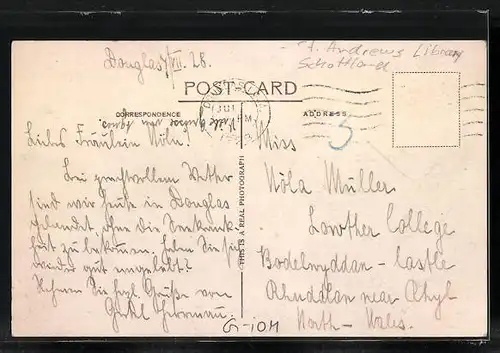 Douglas 7/VII. 28.
St. Andrews Library
Schottland
POST-CARD
CORRESPONDENCE
ADDRESS
Liebes Fräulein Nöla!
Bei prachtvollem Wetter
sind wir heute in Douglas
gelandet, ohne die Seekrank-
heit zu bekommen. Haben Sie sich
wieder gut eingelebt?
Nehmen Sie herzl. Grüße von
THIS IS A REAL PHOTOGRAPH
Miss
Nöla Müller
Lowther College
Bodelwyddan-Castle
Rhuddlan near Rhyl
North-Wales.
5
G-IOM